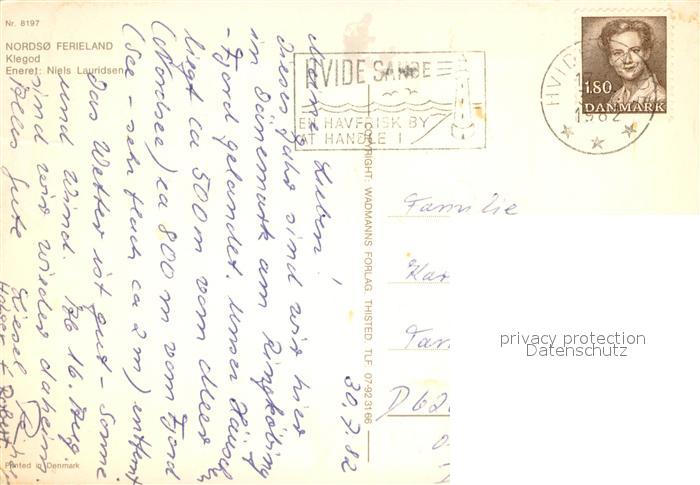 Nr. 8197
NORDSØ FERIELAND
Klegod
Eneret: Niels Lauridsen
HVIDE SANDE
EN HAVFRISK BY
AT HANDLE I
HVID
1982
1.80
DANMARK
30.7.82
Meine Lieben!
Dieses Jahr sind wir hier
in Dänemark am Ringköbing
-Fjord gelandet. Unser Häusel
liegt ca 500 m vom Meer
(Nordsee) ca 800 m vom Fjord
(See - sehr flach ca 2 m) entfernt
Das Wetter ist gut - Sonne
und Wind. Ab 16. Aug.
sind wir wieder daheim.
Alles Gute Liesel
Holger + Robert
COPYRIGHT WADMANNS FORLAG, THISTED. TLF. 07-92 31 66
Familie
Kar
Fan
D 62
privacy protection
Datenschutz
Printed in Denmark